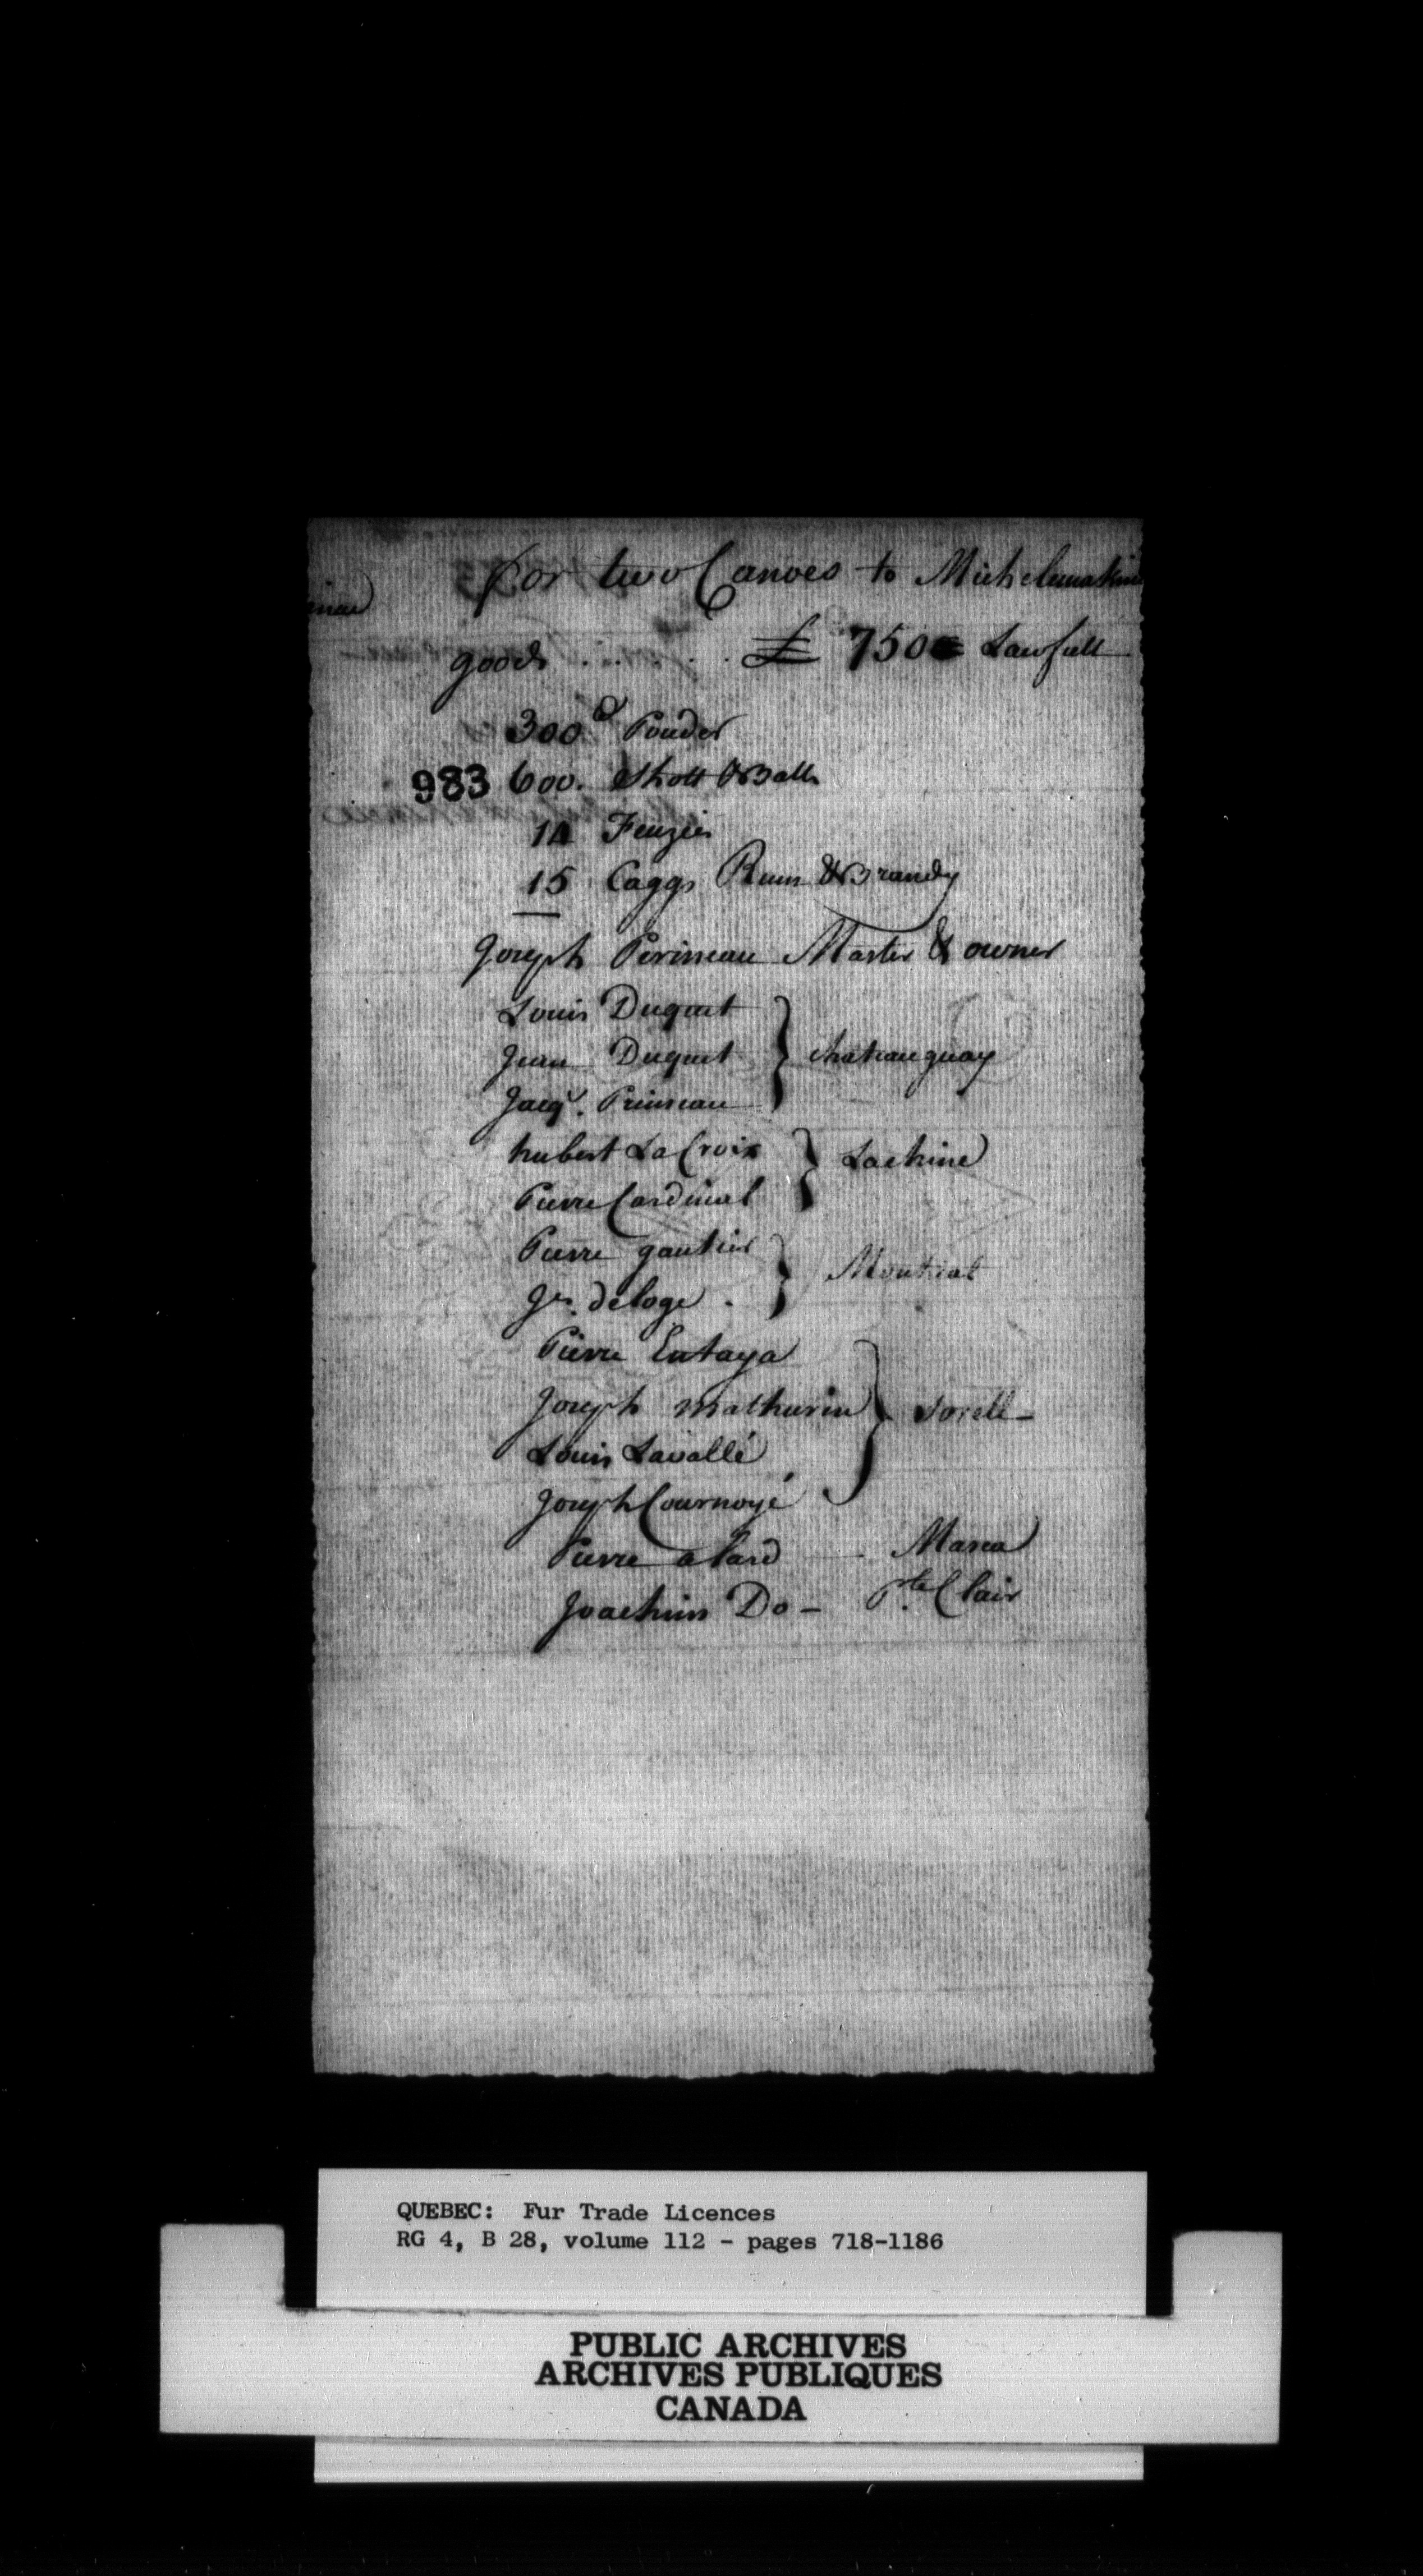 For two Canoes to Michelimakin
goods . . . . . . £ 750 Lawfull
300 d Pouder
983 600. Shott & Balls
14 Fuzies
15 Caggs Rum & Brandy
Joseph Perineau Master & owner
Louis Duquet
Jean Duquet } chateauguay
Jacq. Primeau
hubert LaCroix } Lachine
Pierre Cardinal
Pierre gautier } Montreal
Js. deloge .
Pierre Entaya
Joseph Mathurin } Sorell
Louis Lavallé
Joseph Cournoyé
Pierre alard — Masca
Joachim Do - Pte. Clair
QUEBEC: Fur Trade Licences
RG 4, B 28, volume 112 - pages 718-1186
PUBLIC ARCHIVES
ARCHIVES PUBLIQUES
CANADA